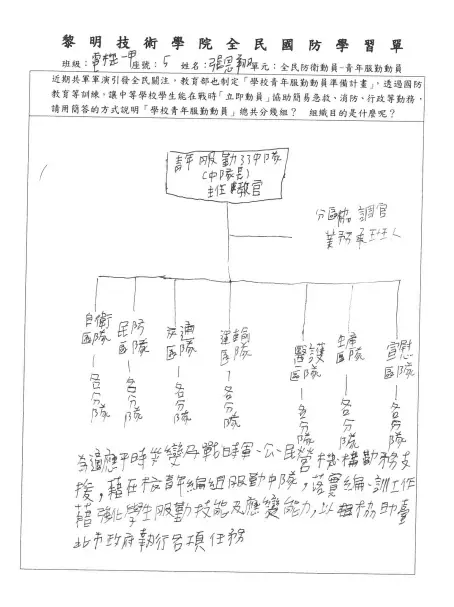 黎明技術學院全民國防學習單
班級：電機一甲 座號：5 姓名：張恩翔 單元：全民防衛動員-青年服勤動員
近期共軍軍演引發全民關注，教育部也制定「學校青年服勤動員準備計畫」，透過國防
教育等訓練，讓中等學校學生能在戰時「立即動員」協助簡易急救、消防、行政等勤務，
請用簡答的方式說明「學校青年服勤動員」總共分幾組？ 組織目的是什麼呢？
青年服勤33中隊
(中隊長)
主任教官
分區協調官
業務承辦人
自衛區隊－各分隊
民防區隊－各分隊
交通區隊－各分隊
運輸區隊－各分隊
醫護區隊－各分隊
生產區隊－各分隊
宣慰區隊－各分隊
為適應平時災變及戰時軍、公、民營機構勤務支
援，藉在校青年編組服勤中隊，落實編、訓工作
藉強化學生服勤技能及應變能力，以協助臺
北市政府執行各項任務